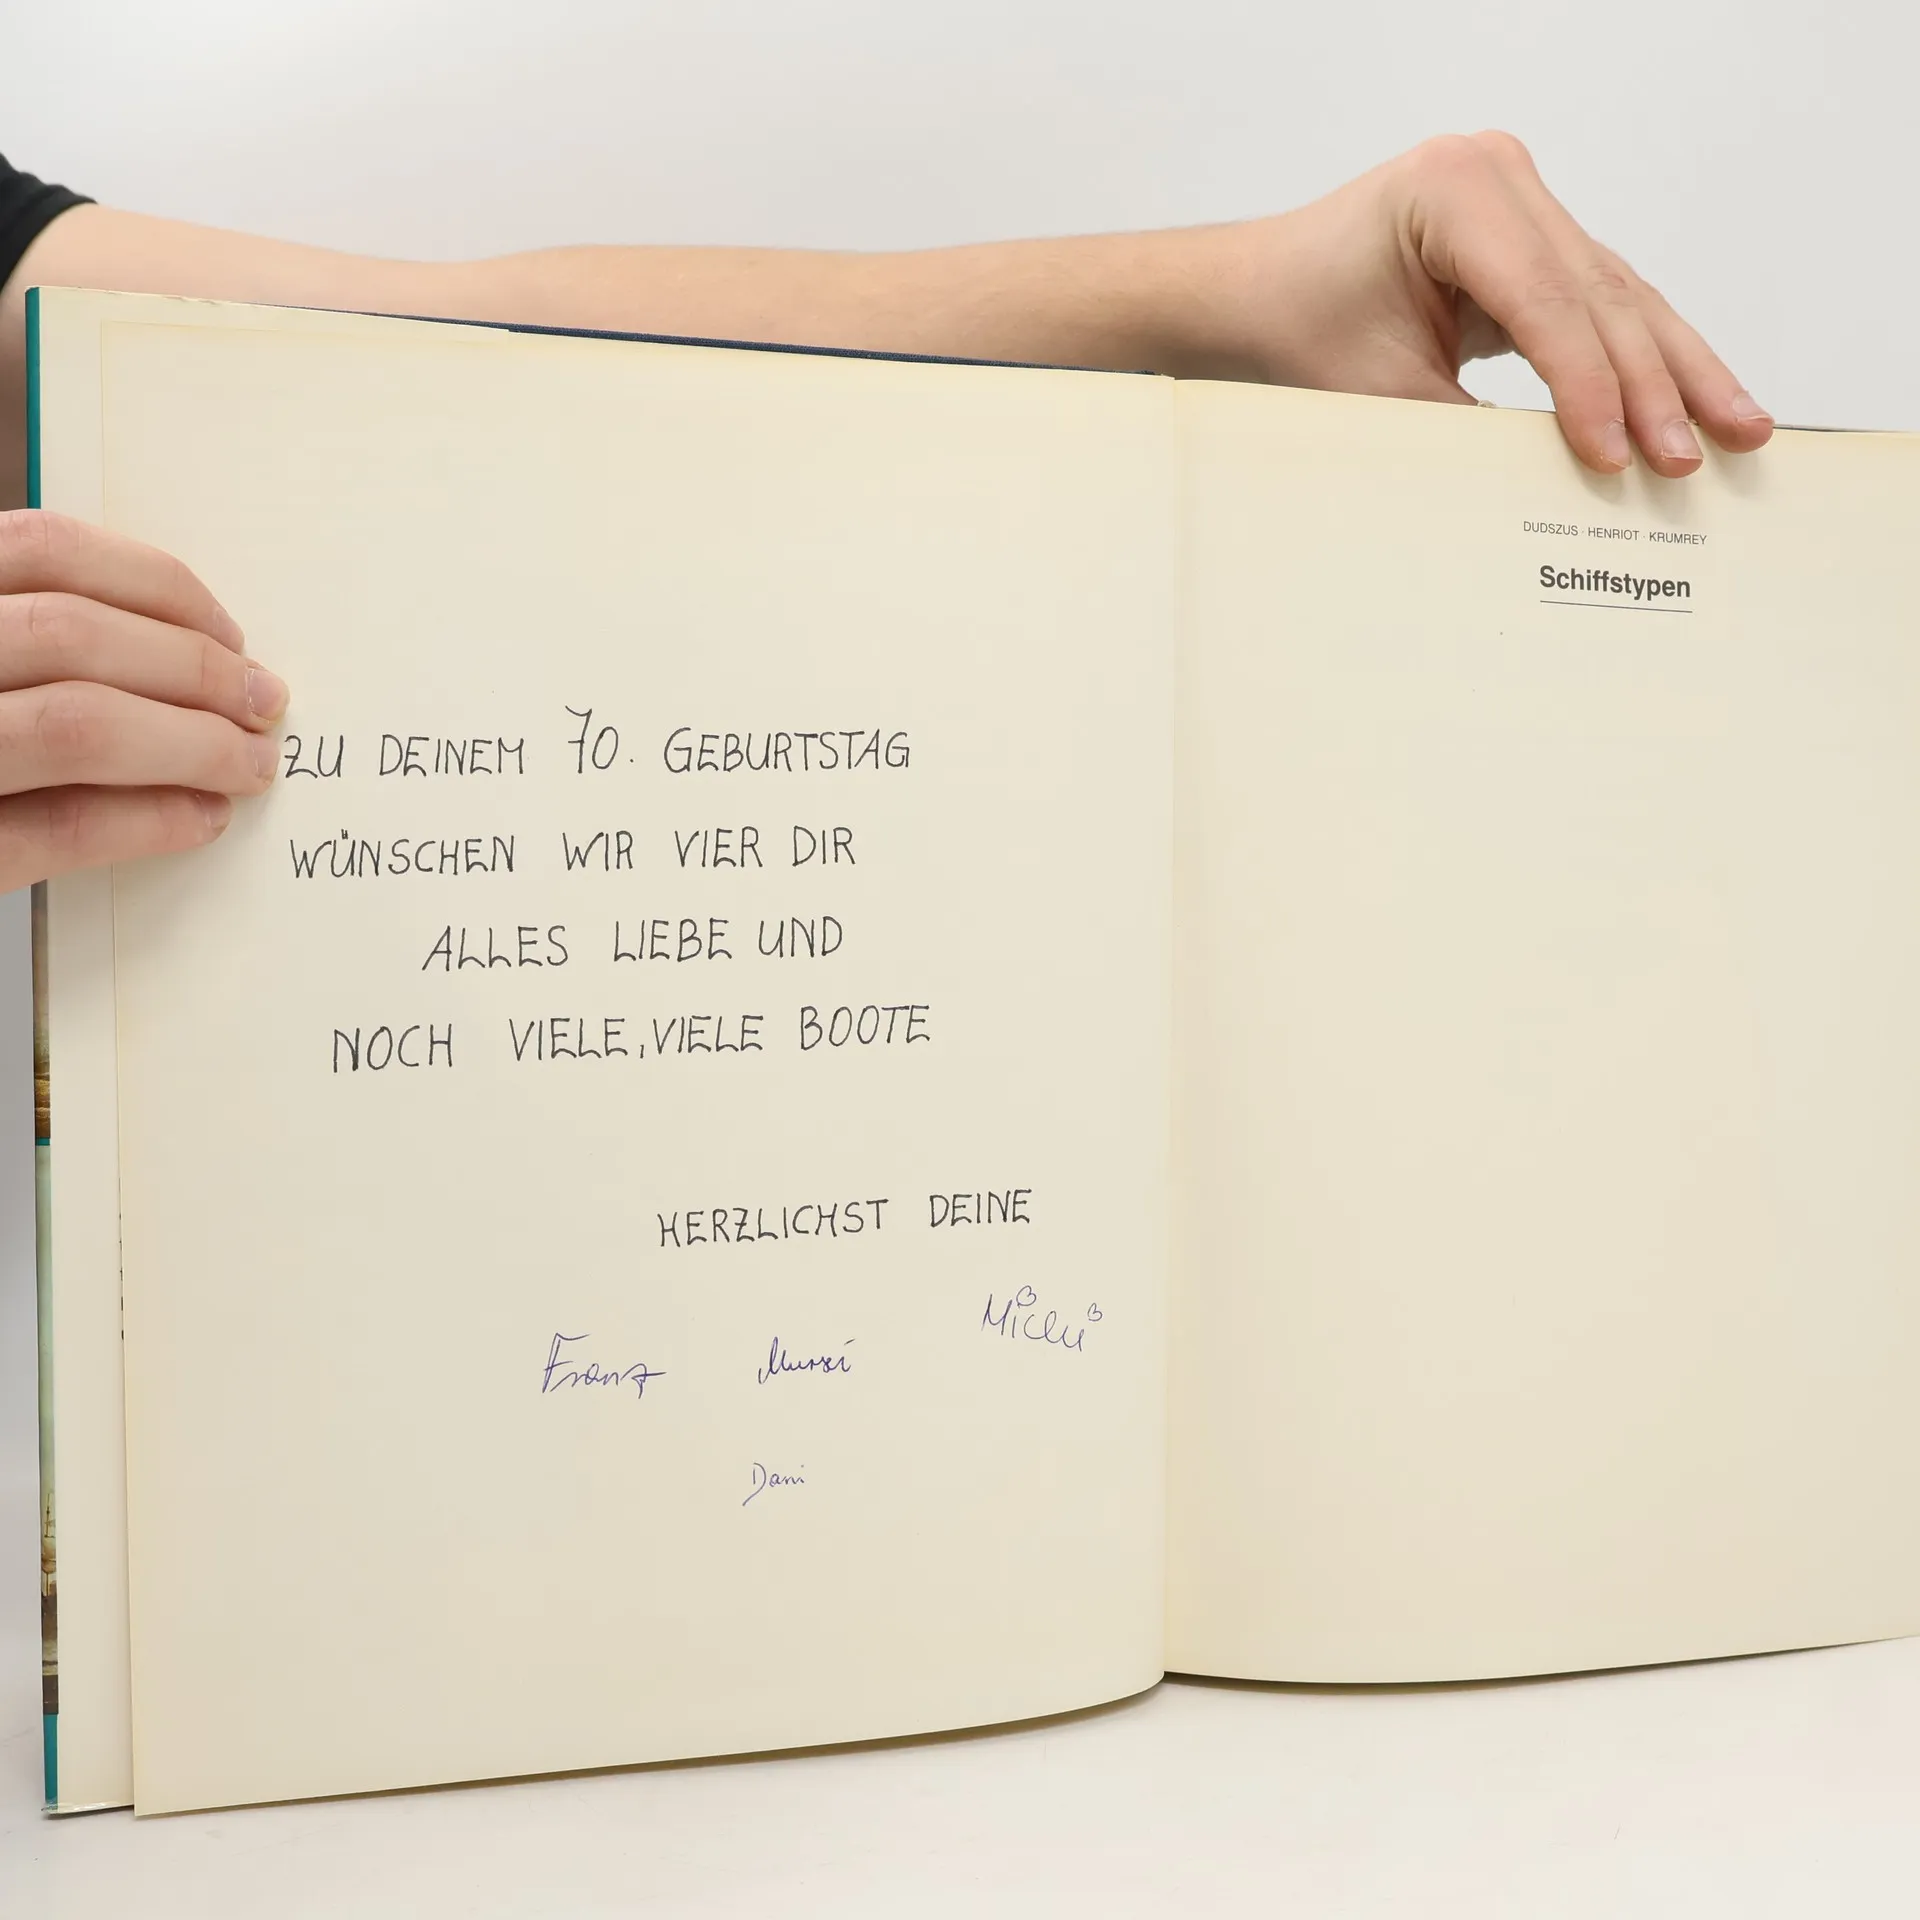 ZU DEINEM 70. GEBURTSTAG
WÜNSCHEN WIR VIER DIR
ALLES LIEBE UND
NOCH VIELE, VIELE BOOTE
HERZLICHST DEINE
Franz
Dani
DUDSZUS · HENRIOT · KRUMREY
Schiffstypen